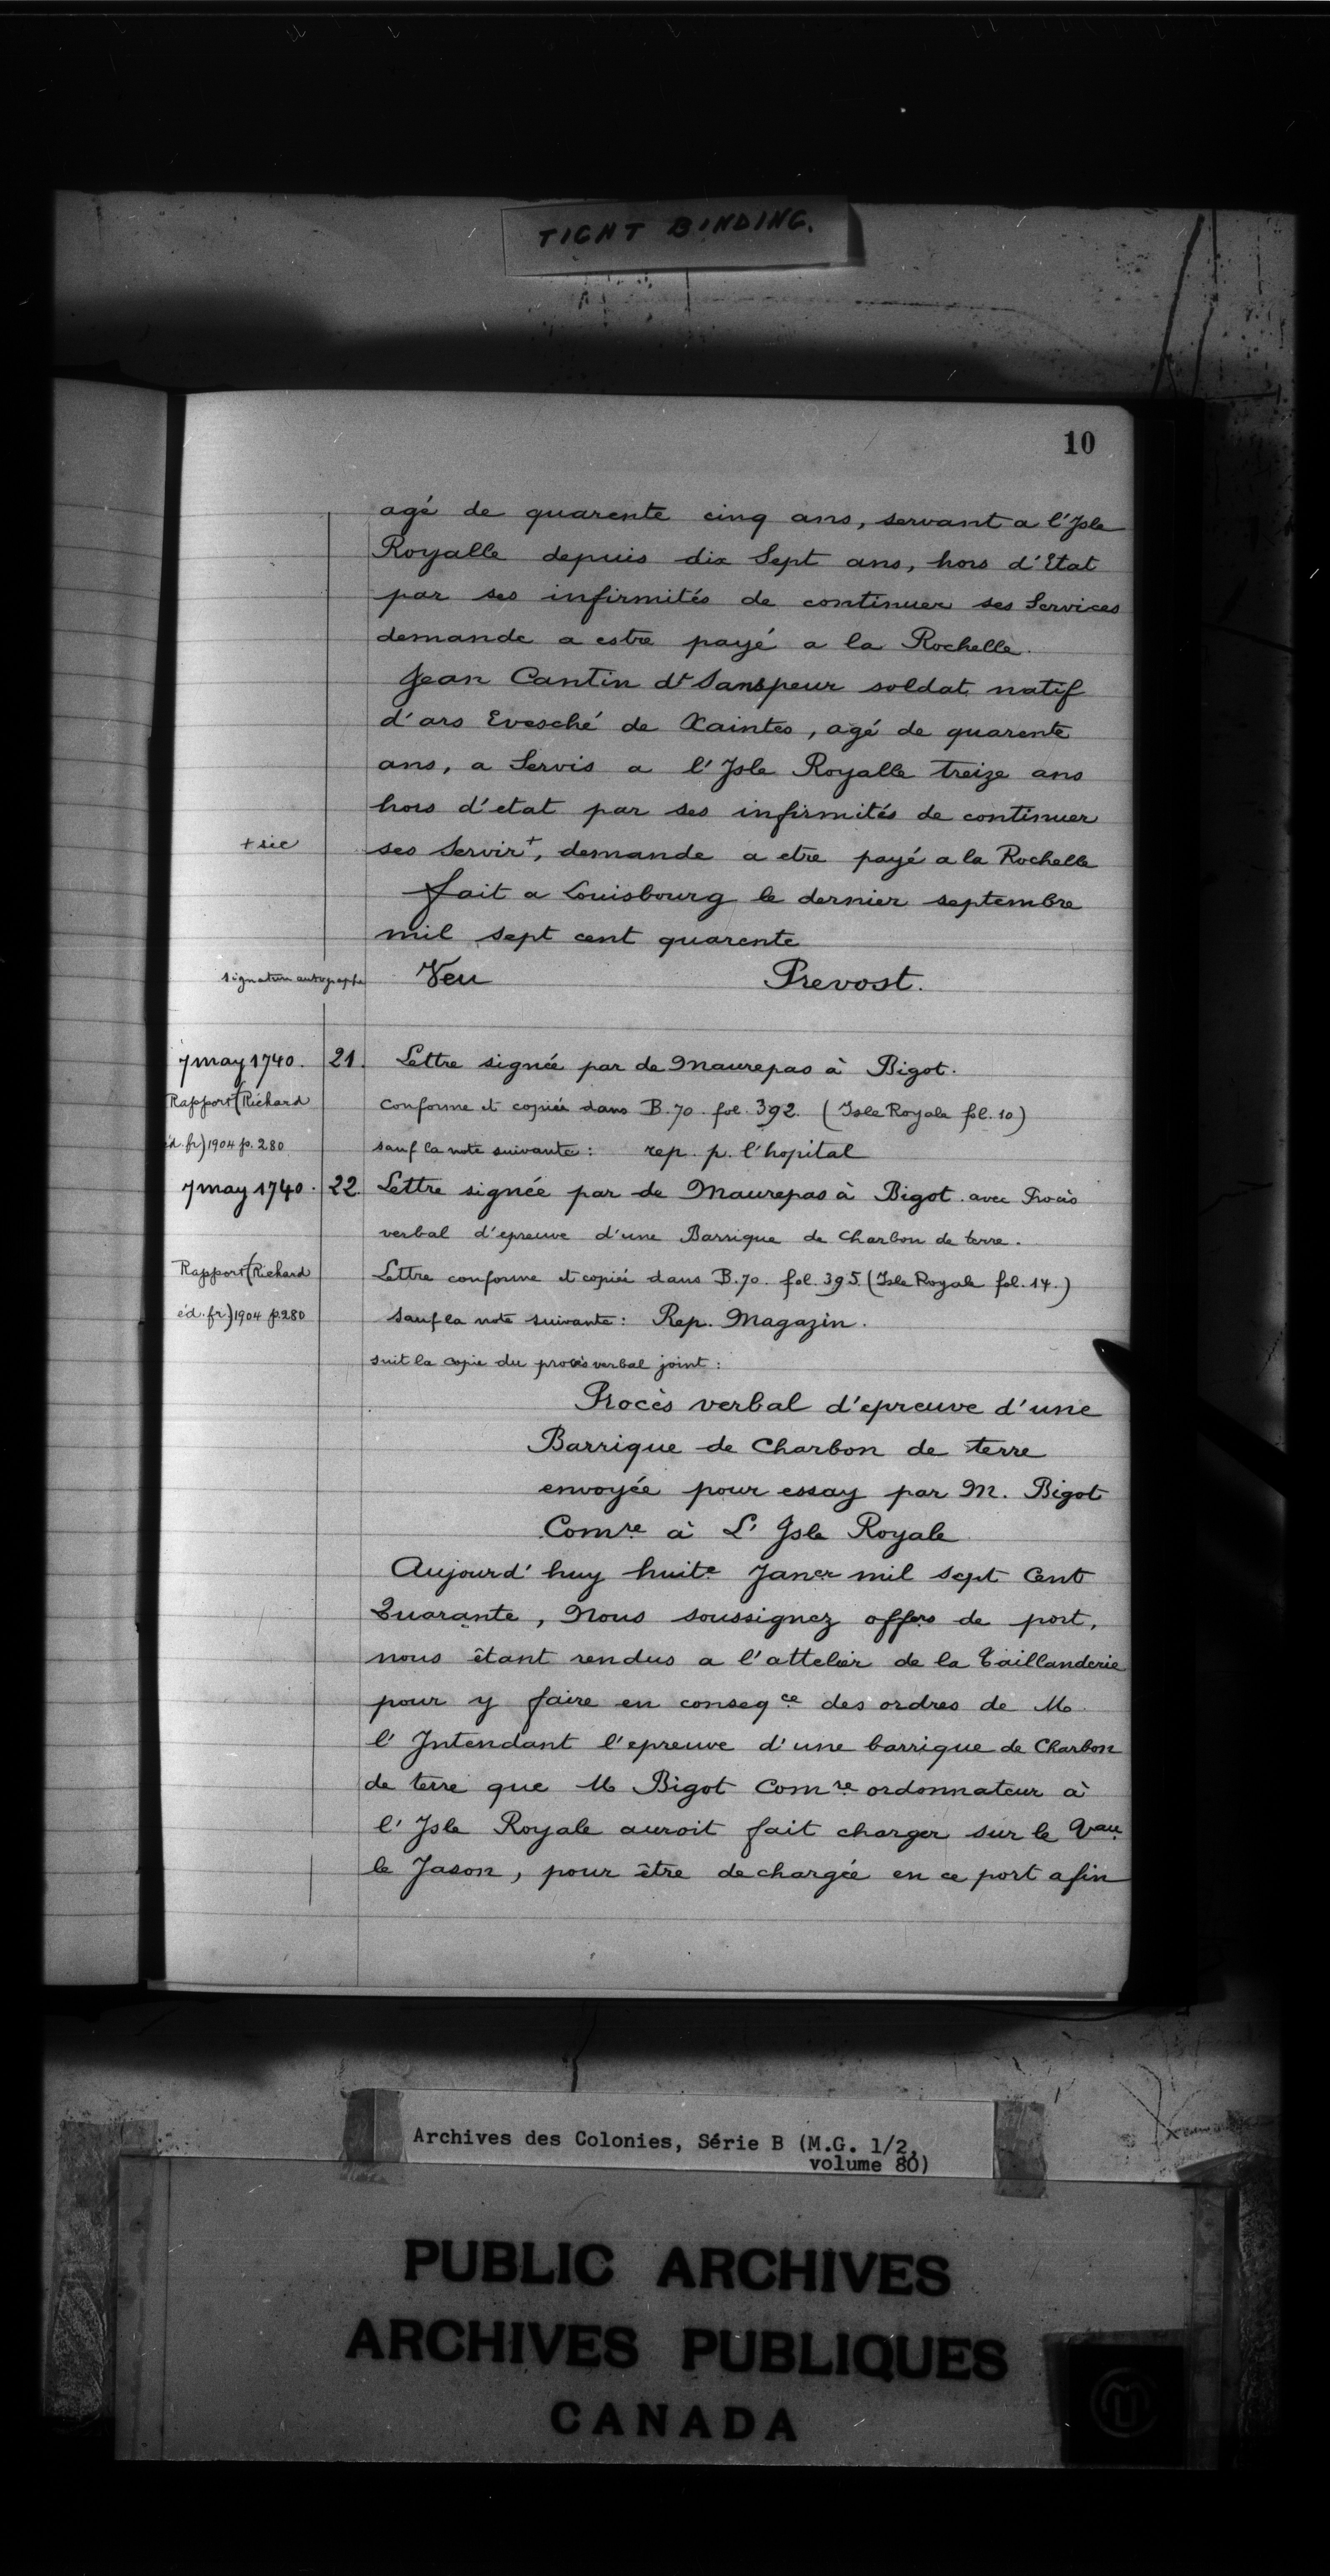 TIGHT BINDING.
10
agé de quarente cinq ans, servant a l'Isle
Royalle depuis dix Sept ans, hors d'Etat
par ses infirmités de continuer ses Services
demande a estre payé a la Rochelle.
Jean Cantin dt Sanspeur soldat natif
d'ars Evesché de Xaintes, agé de quarente
ans, a Servis a l'Isle Royalle treize ans
hors d'etat par ses infirmités de continuer
+ sic
ses Servir+, demande a etre payé a la Rochelle
fait a Louisbourg le dernier septembre
mil sept cent quarente
signature autographe Veu Prevost.
7 may 1740. 21. Lettre signée par de Maurepas à Bigot.
Rapport (Richard conforme et copiée dans B. 70. fol. 392. (Isle Royale fol. 10)
éd. fr) 1904 p. 280 sauf la note suivante: rep. p. l'hopital
7 may 1740. 22. Lettre signée par de Maurepas à Bigot. avec Procès
verbal d'epreuve d'une Barrique de Charbon de terre.
Rapport (Richard Lettre conforme et copiée dans B. 70. fol. 395. (Isle Royale fol. 14.)
éd. fr) 1904 p. 280 sauf la note suivante: Rep. Magazin.
suit la copie du procès verbal joint:
Procès verbal d'epreuve d'une
Barrique de Charbon de terre
envoyée pour essay par M. Bigot
Comre à L'Isle Royale
Aujourd'huy huite Janer mil sept Cent
Quarante, Nous soussignez offers de port,
nous êtant rendus a l'attelier de la Taillanderie
pour y faire en conseqce des ordres de M.
l'Intendant l'epreuve d'une barrique de Charbon
de terre que M Bigot Comre ordonnateur à
l'Isle Royale auroit fait charger sur le Vau
le Jason, pour être dechargée en ce port afin
Archives des Colonies, Série B (M.G. 1/2,
volume 80)
PUBLIC ARCHIVES
ARCHIVES PUBLIQUES
CANADA